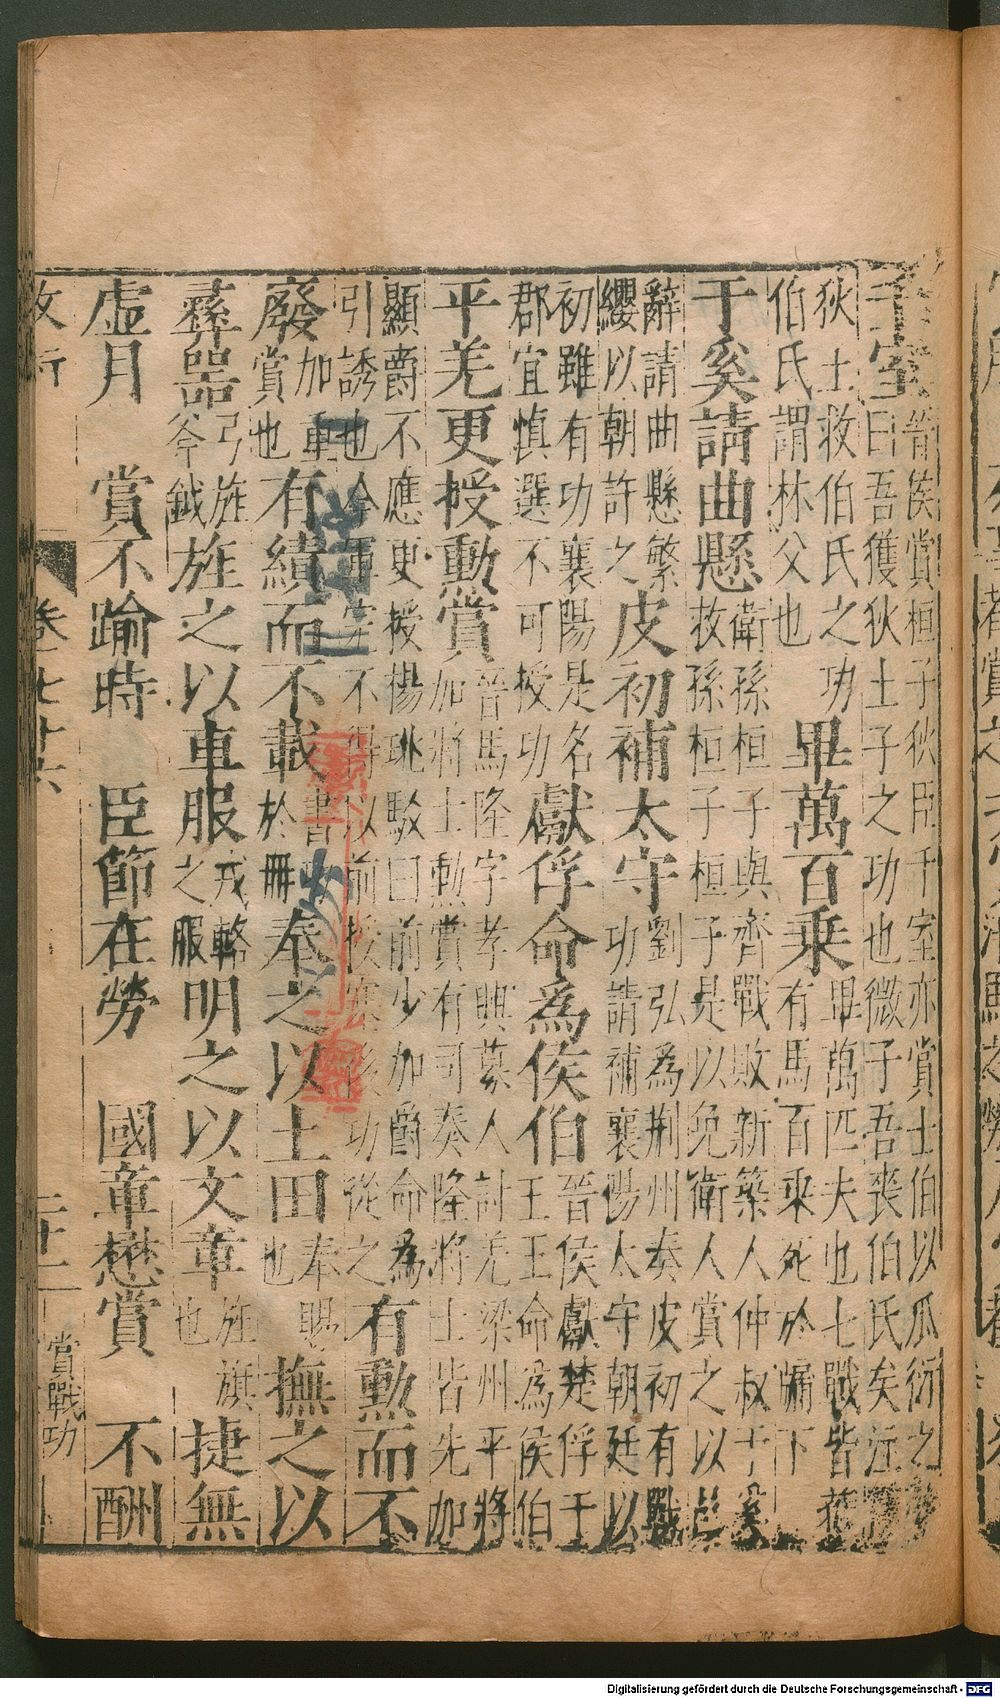 千室 晉侯賞桓子狄臣千室亦賞士伯以瓜衍之
曰吾獲狄土子之功也微子吾喪伯氏矣
狄土救伯氏之功
伯氏謂林父也
畢萬百乘 畢萬匹夫也七戰皆
有馬百乘死於牖下
于奚請曲懸 衛孫桓子與齊戰敗新築人仲叔于奚
救孫桓子桓子是以免衛人賞之以邑
辭請曲懸繁
纓以朝許之
皮初補太守 劉弘為荆州奏皮初有戰
功請補襄陽太守朝廷以
初雖有功襄陽是名
郡宜慎選不可授功
獻俘命為侯伯 晉侯獻楚俘于
王王命為侯伯
平羌更授勲賞 晉馬隆字孝興募人討羌梁州平將
加將士勲賞有司奏隆將士皆先加
顯爵不應更授楊珧駁曰前少加爵命為
引誘也今軍不得以前授塞後功從之
有勲而不
廢 加重
賞也
有績而不載 書
於冊
奉之以土田 奉賜
也
撫之以
彝器 弓
斧鉞
旌之以車服 戎輅
之服
明之以文章 旌旗
也
捷無
虛月 賞不踰時 臣節在勞 國章懋賞 不酬
卷一七十六 二十二 賞戰功
Digitalisierung gefördert durch die Deutsche Forschungsgemeinschaft - DFG